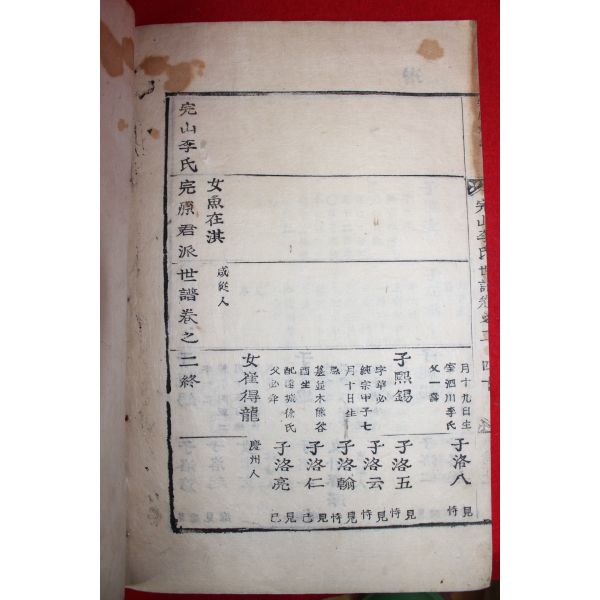 完山李氏世譜卷之二
月十九日生
室酒川李氏
父一壽
子洛八
見
子熙錫
字華必
純宗甲子七
月十日生
墓並木熊谷
酉生
配達城徐氏
父必
子洛五
見
子洛云
見
子洛翰
見
子洛仁
見
子洛亮
見
女崔得龍
慶州人
女魚在淇
咸從人
完山李氏完原君派世譜卷之二終